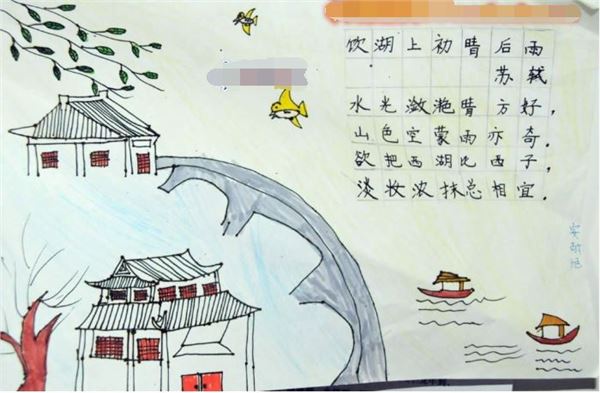 饮湖上初晴后雨
苏轼
水光潋滟晴方好，
山色空蒙雨亦奇。
欲把西湖比西子，
淡妆浓抹总相宜。